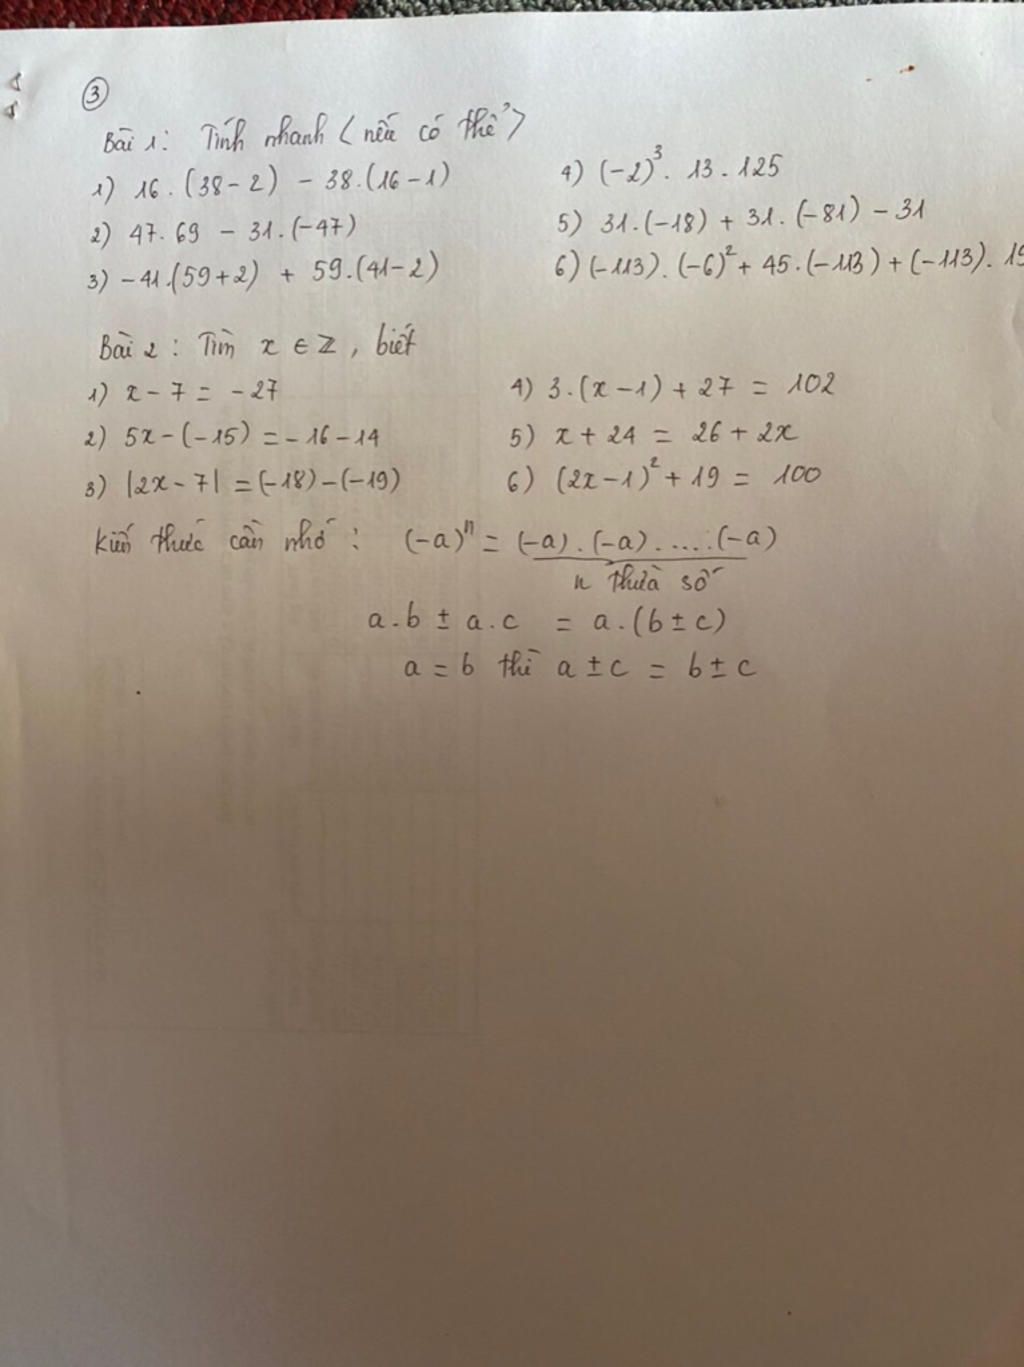 ③
Bài 1: Tính nhanh < nếu có thể >
1) 16 . (38 - 2) - 38.(16 - 1)
2) 47. 69 - 31.(-47)
3) - 41.(59 + 2) + 59.(41 - 2)
4) (-2)³. 13 . 125
5) 31.(-18) + 31. (-81) - 31
6) (-113). (-6)² + 45. (-113) + (-113).
Bài 2 : Tìm x ∈ Z, biết
1) x - 7 = - 27
2) 5x - (-15) = - 16 - 14
3) |2x - 7| = (-18) - (-19)
4) 3.(x - 1) + 27 = 102
5) x + 24 = 26 + 2x
6) (2x - 1)² + 19 = 100
Kiến thức cần nhớ : (-a)ⁿ = (-a) . (-a) . .... . (-a)
n thừa số
a.b ± a.c = a.(b ± c)
a = b thì a ± c = b ± c